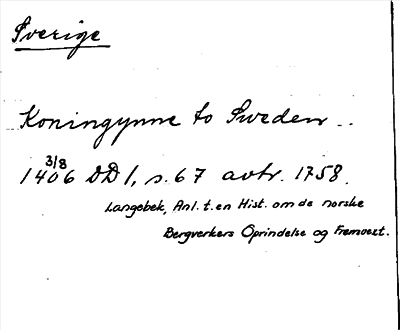 Sverige
Koningynne to Sweden ..
3/8
1406 DD 1, s. 67 avtr. 1758.
Langebek, Anl. t. en Hist. om de norske
Bergverkers Oprindelse og Fremvext.